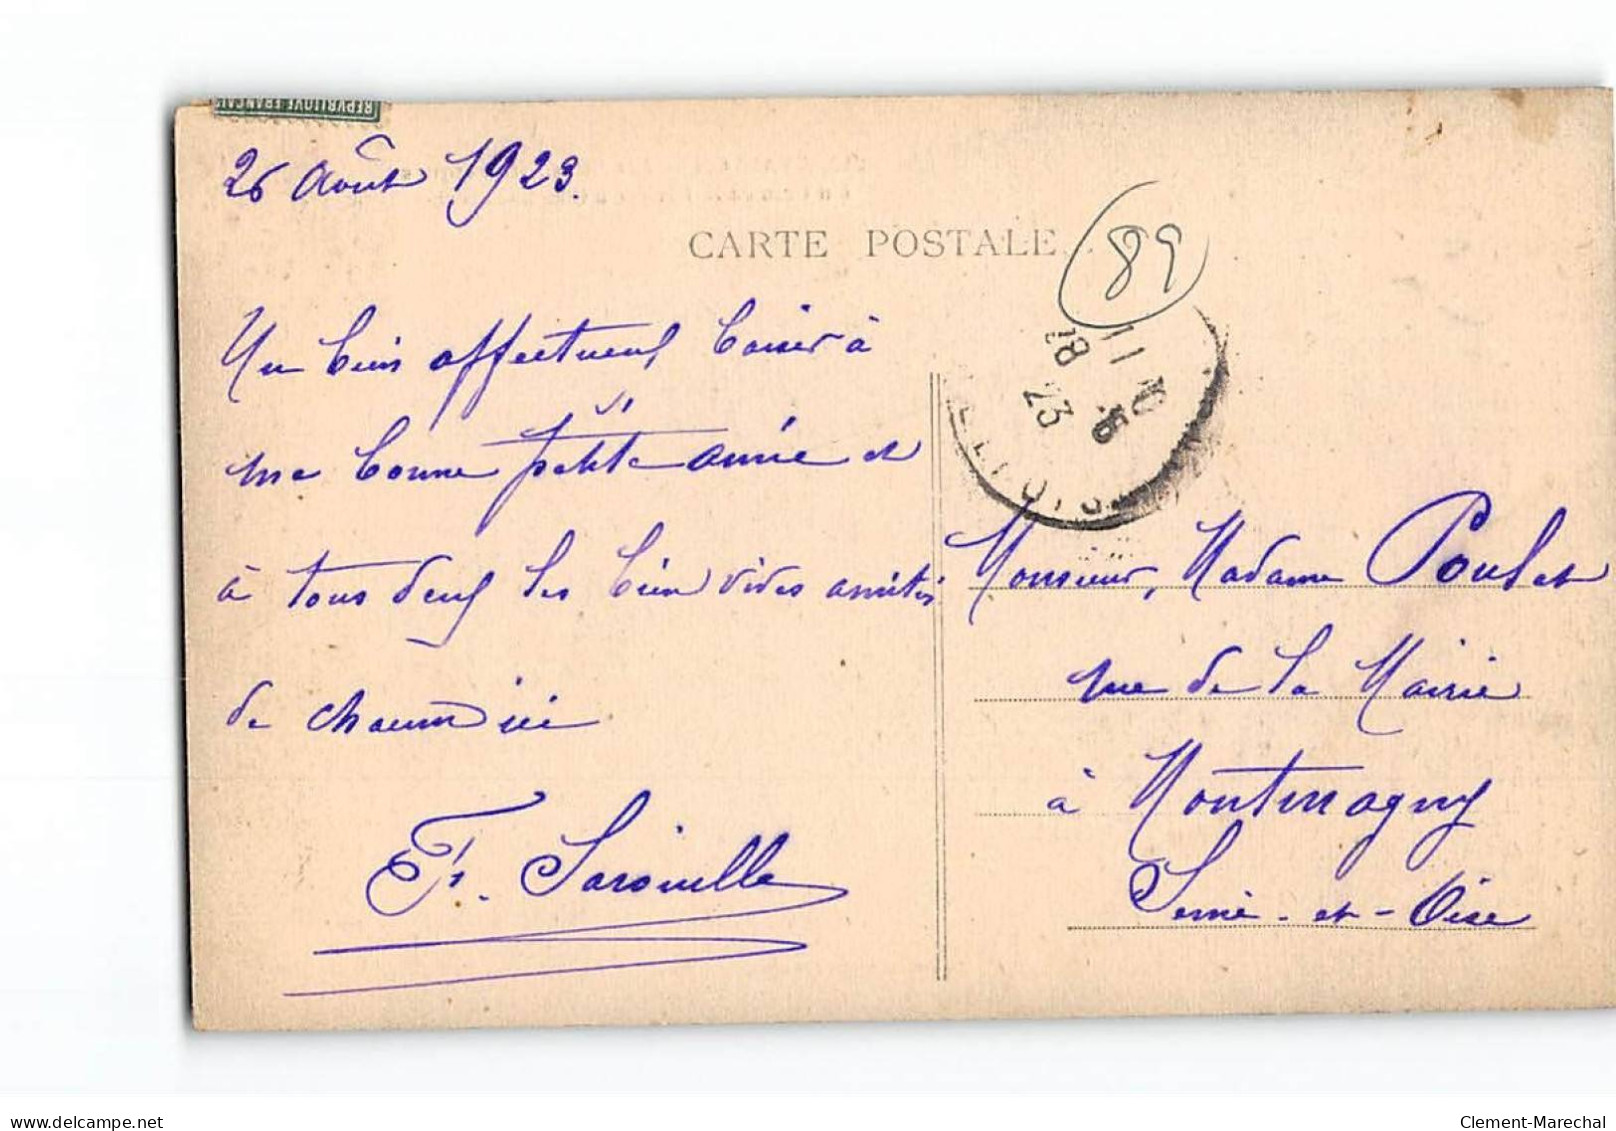 REPVBLIQVE FRANÇAI
26 Août 1923.
CARTE POSTALE
89
Un bien affectueux baiser à
ma bonne petite amie et
à tous deux les bien vives amitiés
de
F.
11 10
28 8
23
Monsieur, Madame Poulet
rue de la Mairie
à Montmagny
Seine-et-Oise
delcampe.net
Clement-Marechal